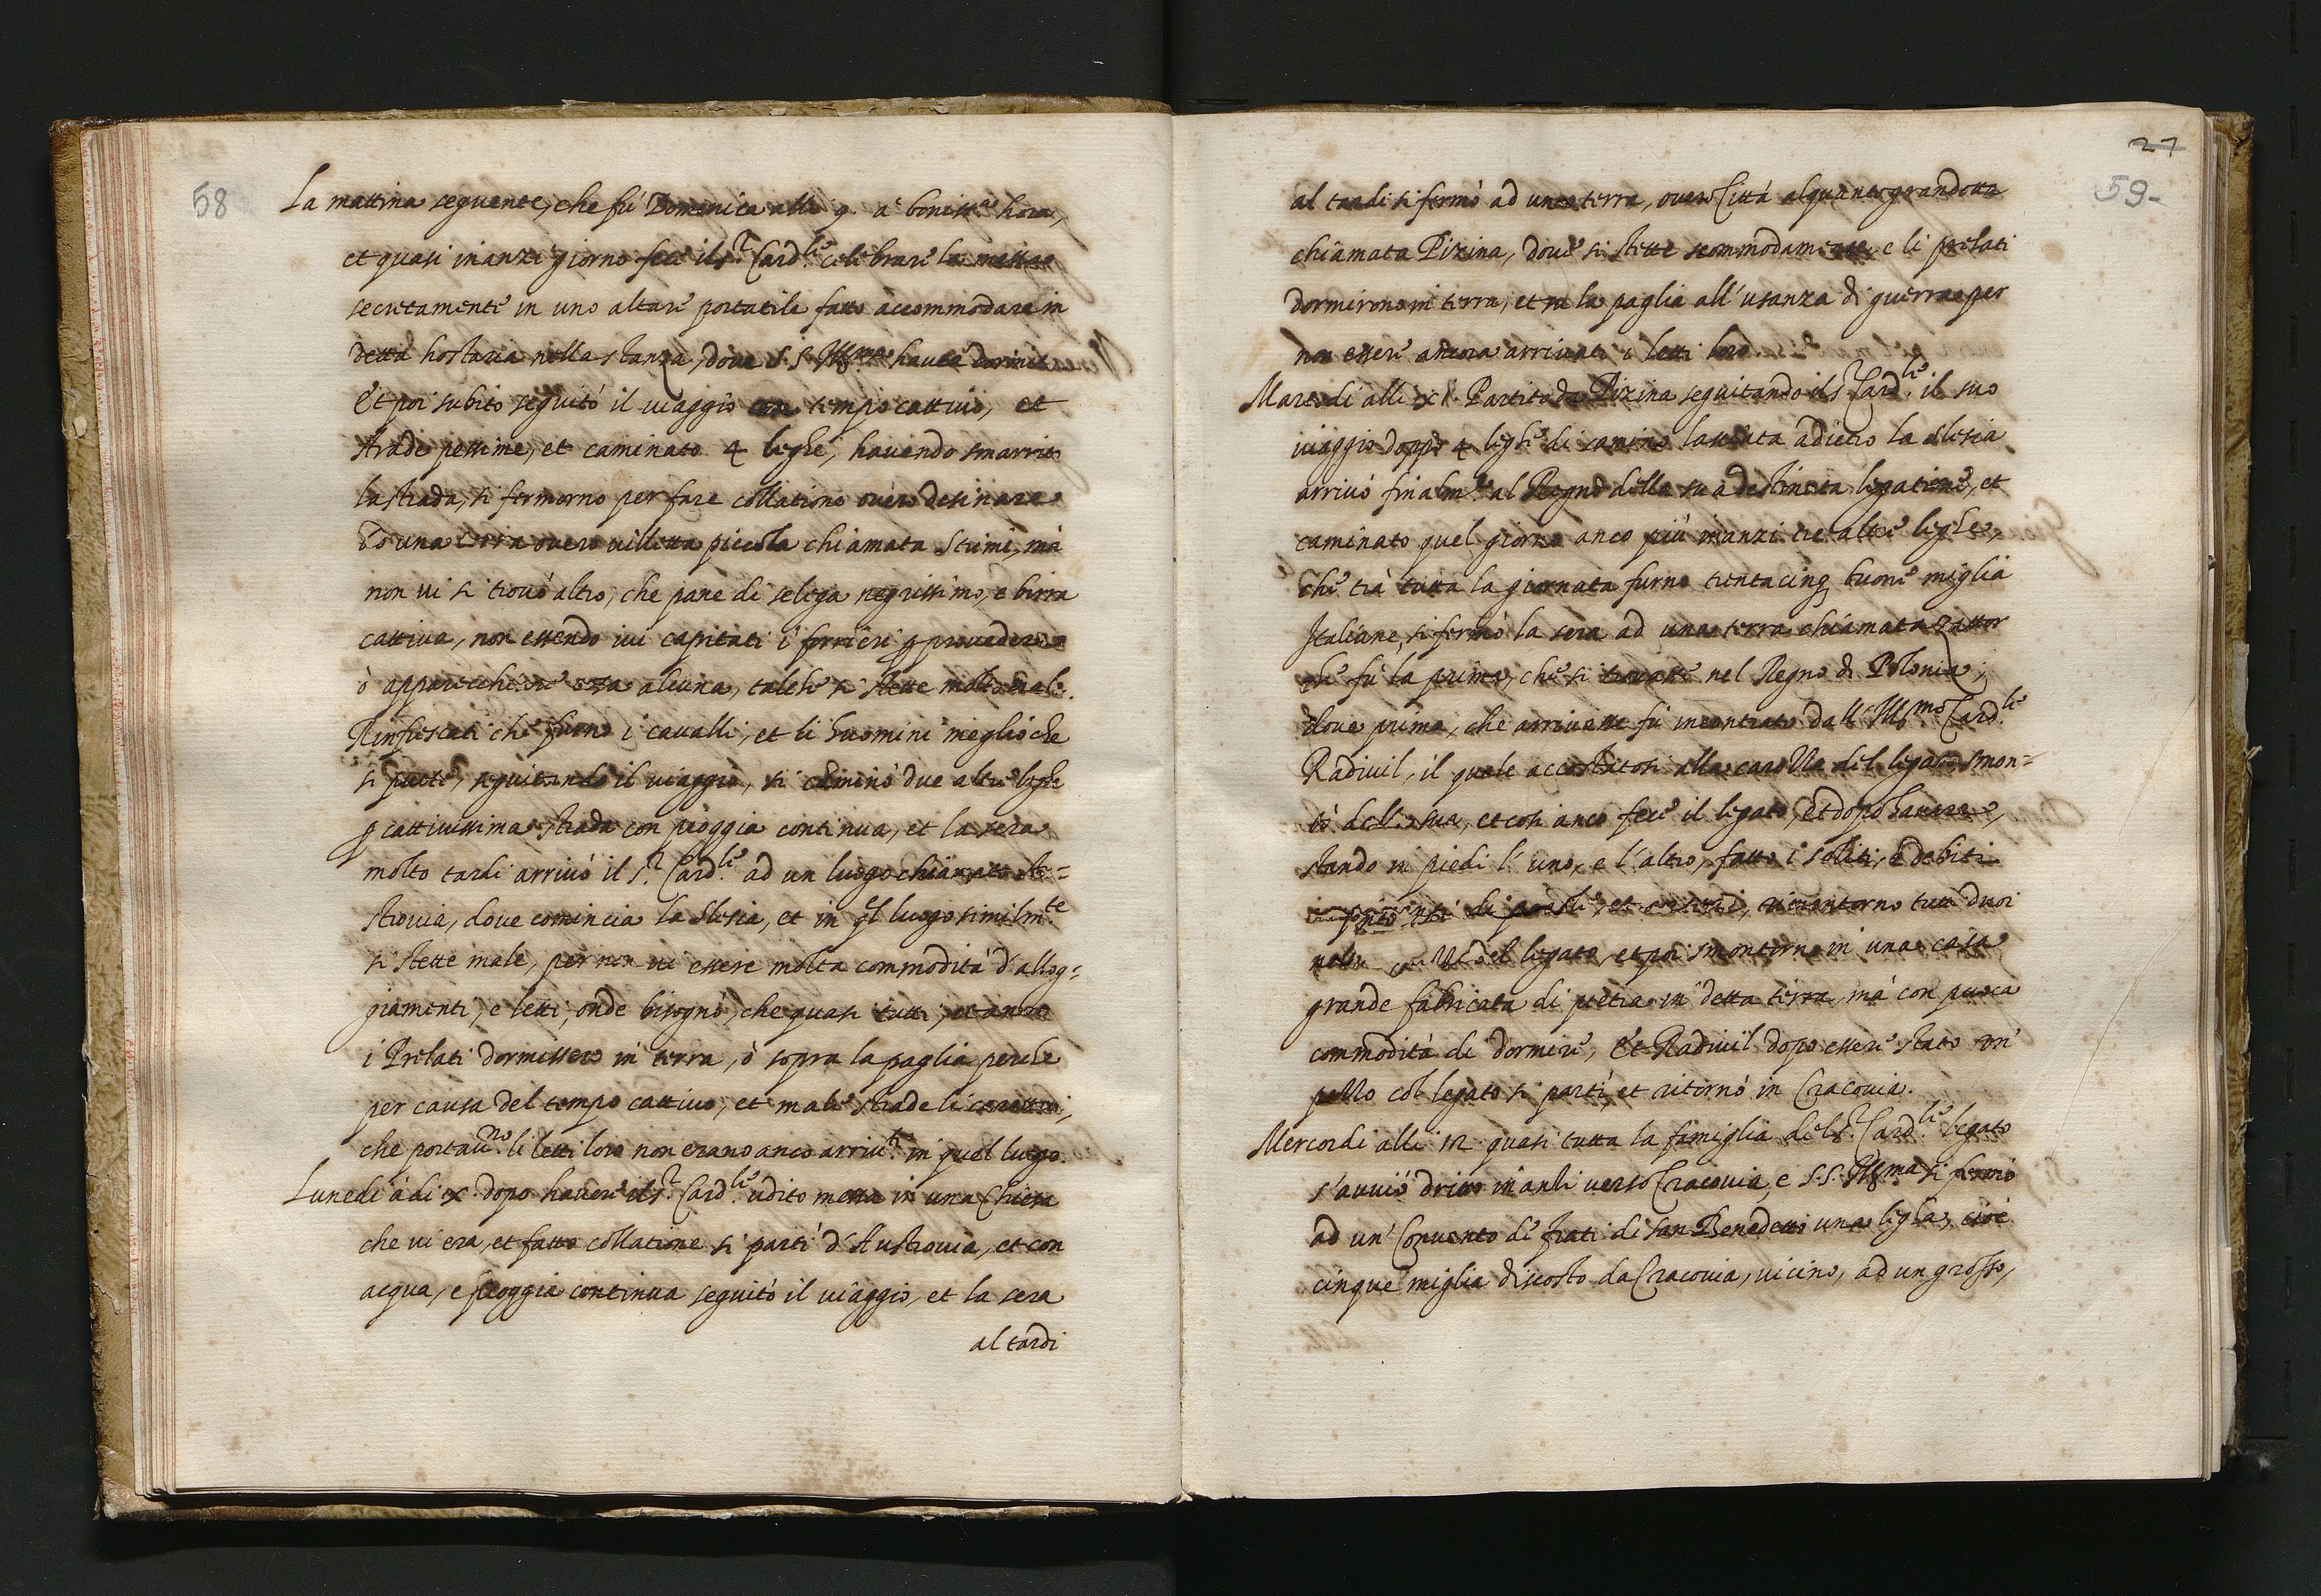 58
La mattina seguente, che fù Domenica alli 9. à boniss.ª hora,
et quasi inanzi giorno fece il S.r Card.le celebrare la messa
secretamente in uno altare portatile fatto accommodare in
detta hostaria nella stanza, dove S.S. Ill.ma havea dormit
Et poi subito seguitò il viaggio con tempo cattivo, et
strade pessime, et caminato 4 leghe, havendo smarrito
la strada, si fermorno per fare collatione overo desinare
ad una terra overo villetta piccola chiamata Scimi, mà
non vi si trovò altro, che pane di selega negrissimo, e birra
cattiva, non essendo ivi capitati i forrieri p provedere
ò apparecchiare cosa alcuna, talche si stette molto male.
Rinfrescati che furno i cavalli, et li huomini meglio che
si puotè, seguitando il viaggio, si caminò due altre leghe
p cattivissima strada con pioggia continua, et la sera
molto tardi arrivò il S.r Card.le ad un luogo chiamato As=
strovia, dove comincia la Slesia, et in ql luogo similm.te
si stette male, per non vi essere molta commodità d'allog=
giamenti, e letti, onde bisognò, che quasi tutti, et anco
i Prelati dormissero in terra, ò sopra la paglia perche
per causa del tempo cattivo, et male strade li carettoni,
che portav.no li letti loro non erano anco arriv.ti in quel luogo.
Lunedi à di x. dopo havere il S.r Card.le udito messa in una Chiesa
che vi era, et fatto collatione si parti d'Austrovia, et con
acqua, e pioggia continua seguitò il viaggio, et la sera
al tardi
27
59-
al tardi si fermò ad una terra, overo Città alquanto grandotta
chiamata Pizina, dove si stette scommodamente, e li prelati
dormirono in terra, et in la paglia all'usanza di guerra per
non essere ancora arrivati i letti loro
Martedi alli xi. Partito da Pizina seguitando il S.r Card.le il suo
viaggio doppo 4 leghe di camino lasciata adietro la Slesia
arrivò finalm.te al Regno della sua destinata legatione, et
caminato quel giorno anco più inanzi tre altre leghe,
che trà tutta la giornata furno trentacinq buone miglia
Italiane, si fermò la sera ad una terra chiamata Zattor
che fù la prima, che si trovasse nel Regno di Polonia;
dove prima, che arrivasse fù incontrato dall'Ill.mo Card.le
Radivil, il quale accostatosi alla carozza del legato smon=
tò dalla sua, et così anco fece il legato, et dopo havere,
stando in piedi l'uno, e l'altro, fatto i soliti, e debiti
di parole, et rimontorno tutti duoi
nella del legato, et poi smontorno in una casa
grande fabricata di pietra in detta terra, mà con puoca
commodità di dormire, Et Radivil dopo essere stato un'
pezzo col legato si partì, et ritornò in Cracovia.
Mercordi alli 12 quasi tutta la famiglia del S.r Card.le legato
s'avviò dritto inanti verso Cracovia, e S.S. Ill.ma si fermò
ad un' Convento di frati di San Benedetto una legha, cioè
cinque miglia discosto da Cracovia, vicino, ad un grosso,